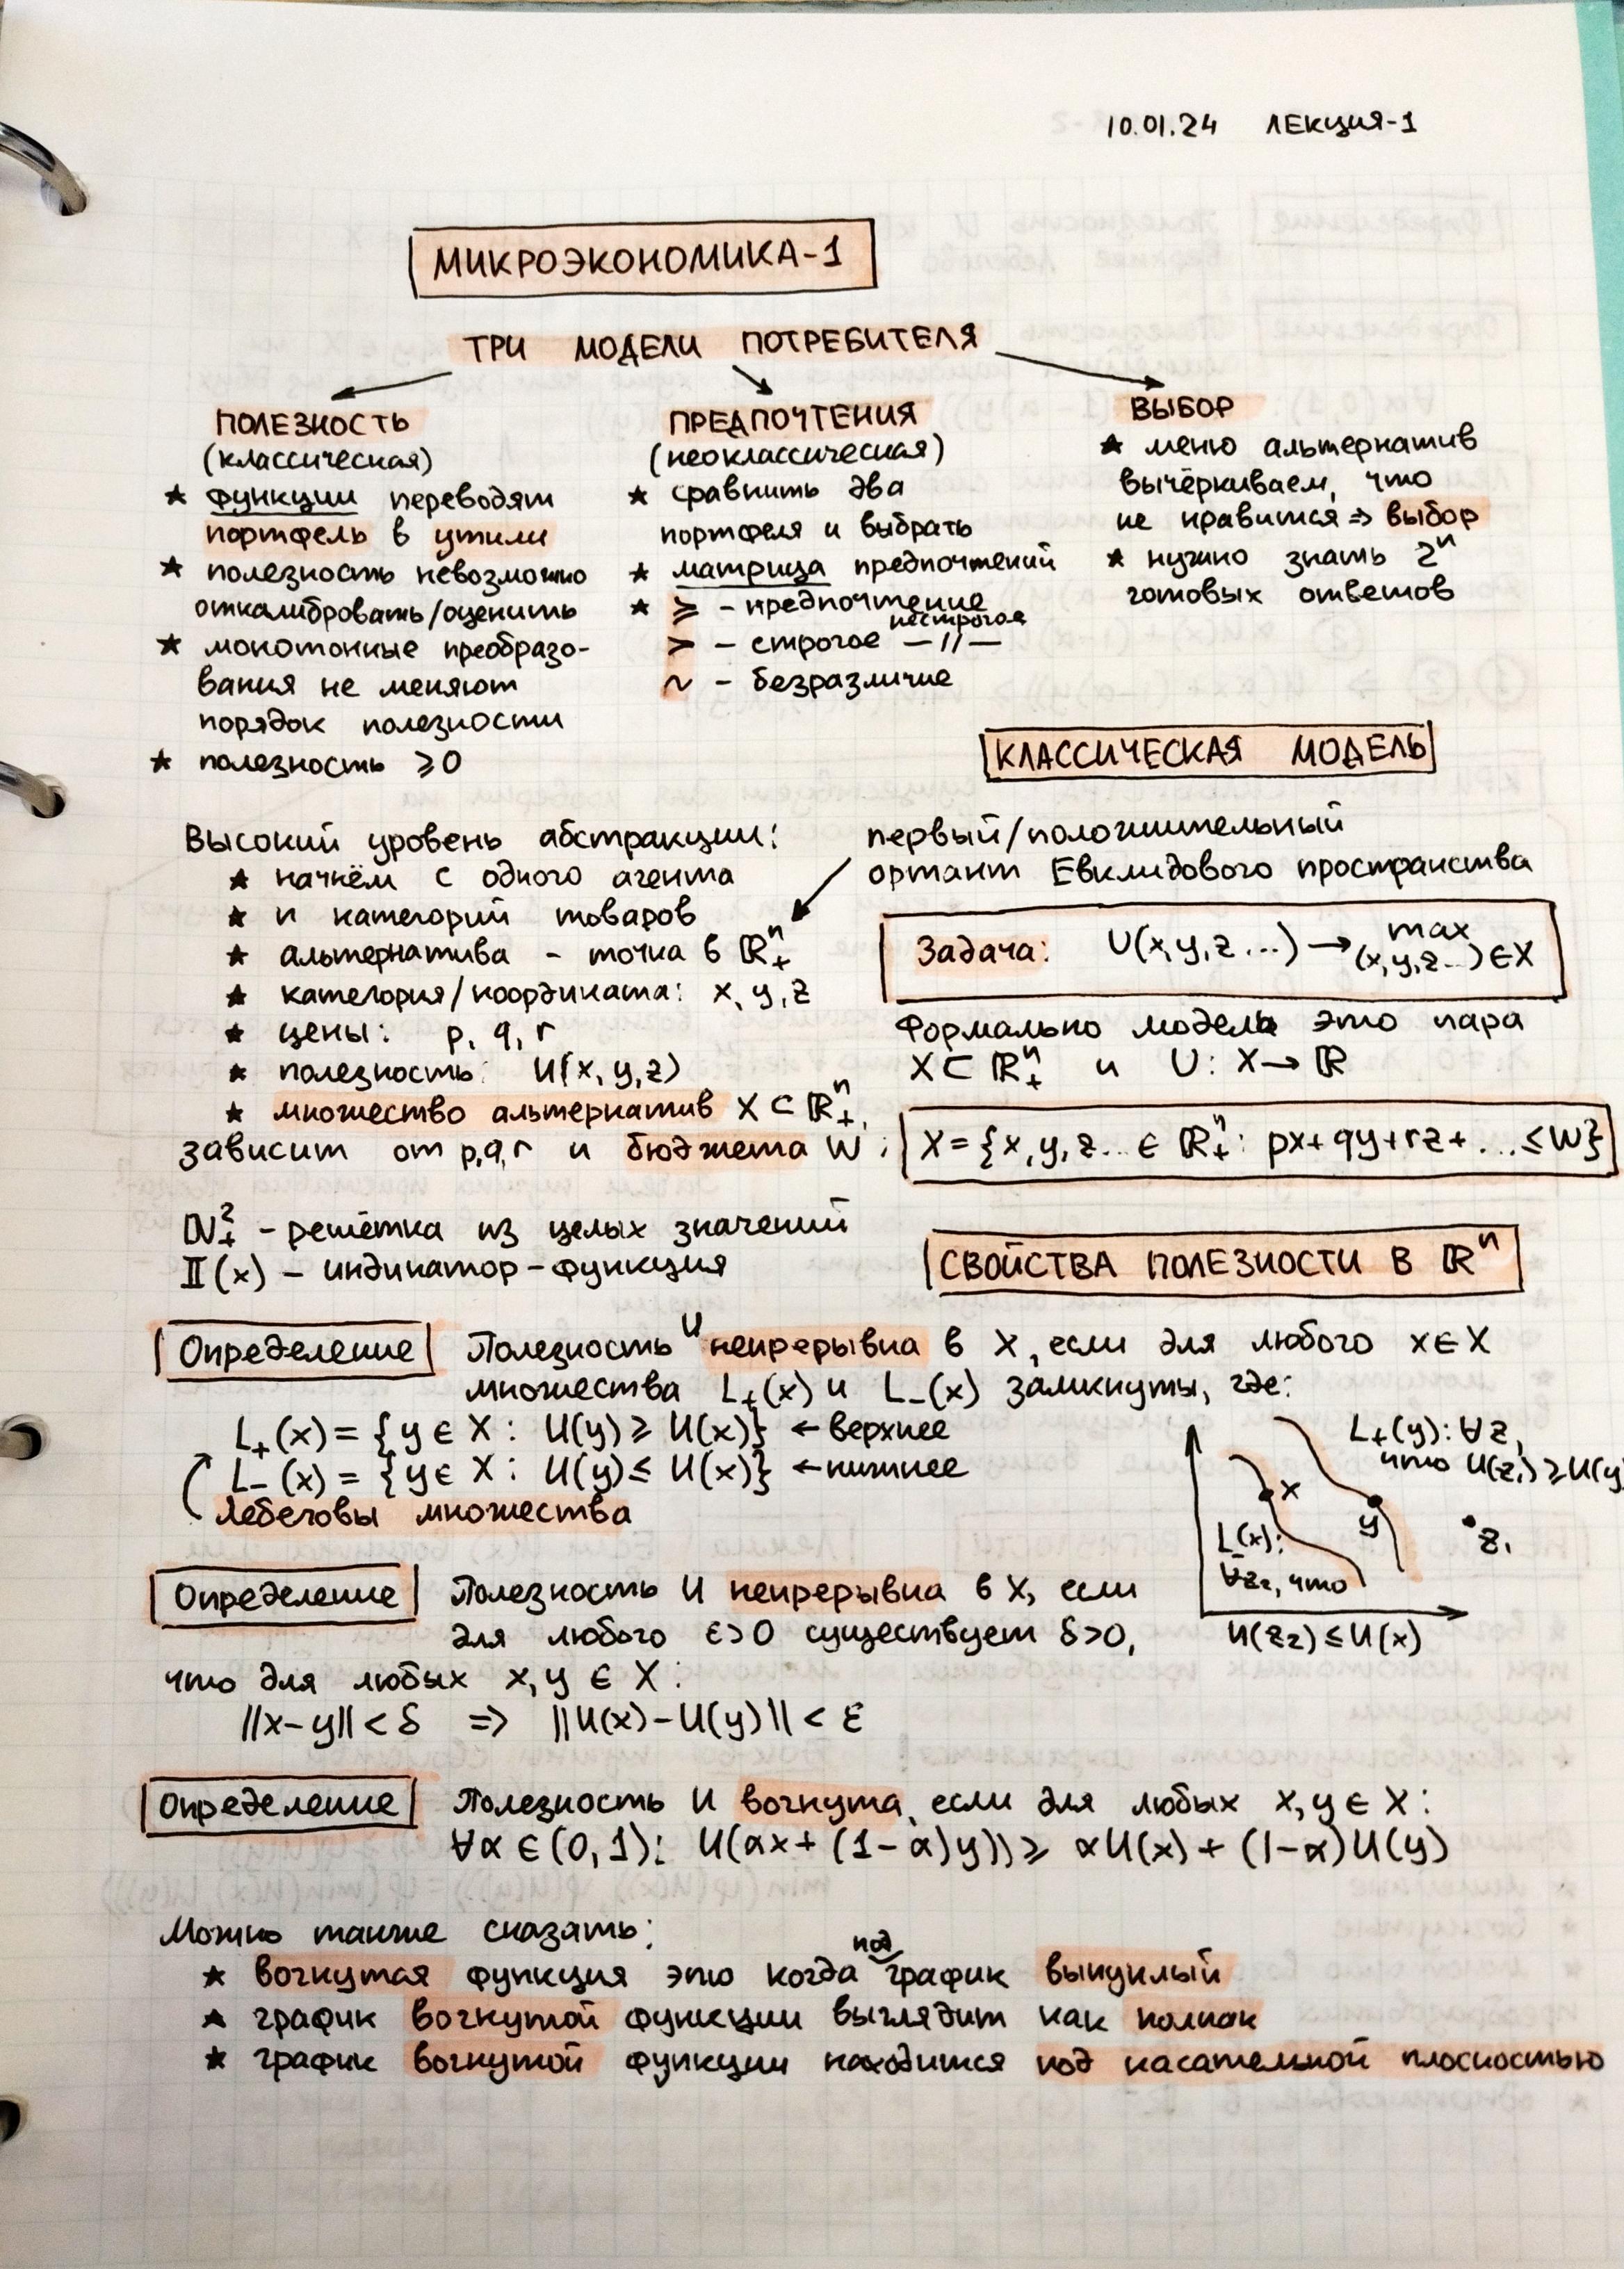 10.01.24 ЛЕКЦИЯ-1
МИКРОЭКОНОМИКА-1
ТРИ МОДЕЛИ ПОТРЕБИТЕЛЯ
ПОЛЕЗНОСТЬ
(классическая)
★ функции переводят
портфель в утили
★ полезность невозможно
откалибровать/оценить
★ монотонные преобразо-
вания не меняют
порядок полезности
★ полезность ⩾0
ПРЕДПОЧТЕНИЯ
(неоклассическая)
★ сравнить два
портфеля и выбрать
★ матрица предпочтений
★ ≽ – предпочтение
нестрогое
≻ – строгое —//—
~ – безразличие
ВЫБОР
★ меню альтернатив
вычёркиваем, что
не нравится ⇒ выбор
★ нужно знать 2ⁿ
готовых ответов
КЛАССИЧЕСКАЯ МОДЕЛЬ
Высокий уровень абстракции:
★ начнём с одного агента
★ n категорий товаров
★ альтернатива – точка в ℝ₊ⁿ
★ категория/координата: x, y, z
★ цены: p, q, r
★ полезность: U(x, y, z)
★ множество альтернатив X ⊂ ℝ₊ⁿ,
зависит от p,q,r и бюджета W:
первый/положительный
ортант Евклидового пространства
Задача: U(x,y,z...) → max (x,y,z...)∈X
Формально модель это пара
X ⊂ ℝ₊ⁿ и U: X→ℝ
X={x,y,z... ∈ ℝ₊ⁿ: px+qy+rz+...≤W}
ℕ₊² – решётка из целых значений
𝕀(x) – индикатор-функция
СВОЙСТВА ПОЛЕЗНОСТИ В ℝⁿ
Определение Полезность U непрерывна в X, если для любого x∈X
множества L₊(x) и L₋(x) замкнуты, где:
L₊(x) = {y ∈ X : U(y) ⩾ U(x)} ← верхнее
L₋(x) = {y ∈ X : U(y) ≤ U(x)} ← нижнее
Лебеговы множества
L₊(y): ∀z₁
что U(z₁) ⩾U(y)
x
y
z₁
L₋(x):
∀z₂, что
U(z₂) ≤ U(x)
Определение Полезность U непрерывна в X, если
для любого ε>0 существует δ>0,
что для любых x,y ∈ X:
||x–y|| < δ ⇒ ||U(x)–U(y)|| < ε
Определение Полезность U вогнута, если для любых x,y ∈ X:
∀α ∈ (0,1): U(αx+(1–α)y)) ⩾ αU(x) + (1–α)U(y)
Можно также сказать:
★ вогнутая функция это когда под график выпуклый
★ график вогнутой функции выглядит как колпак
★ график вогнутой функции находится под касательной плоскостью